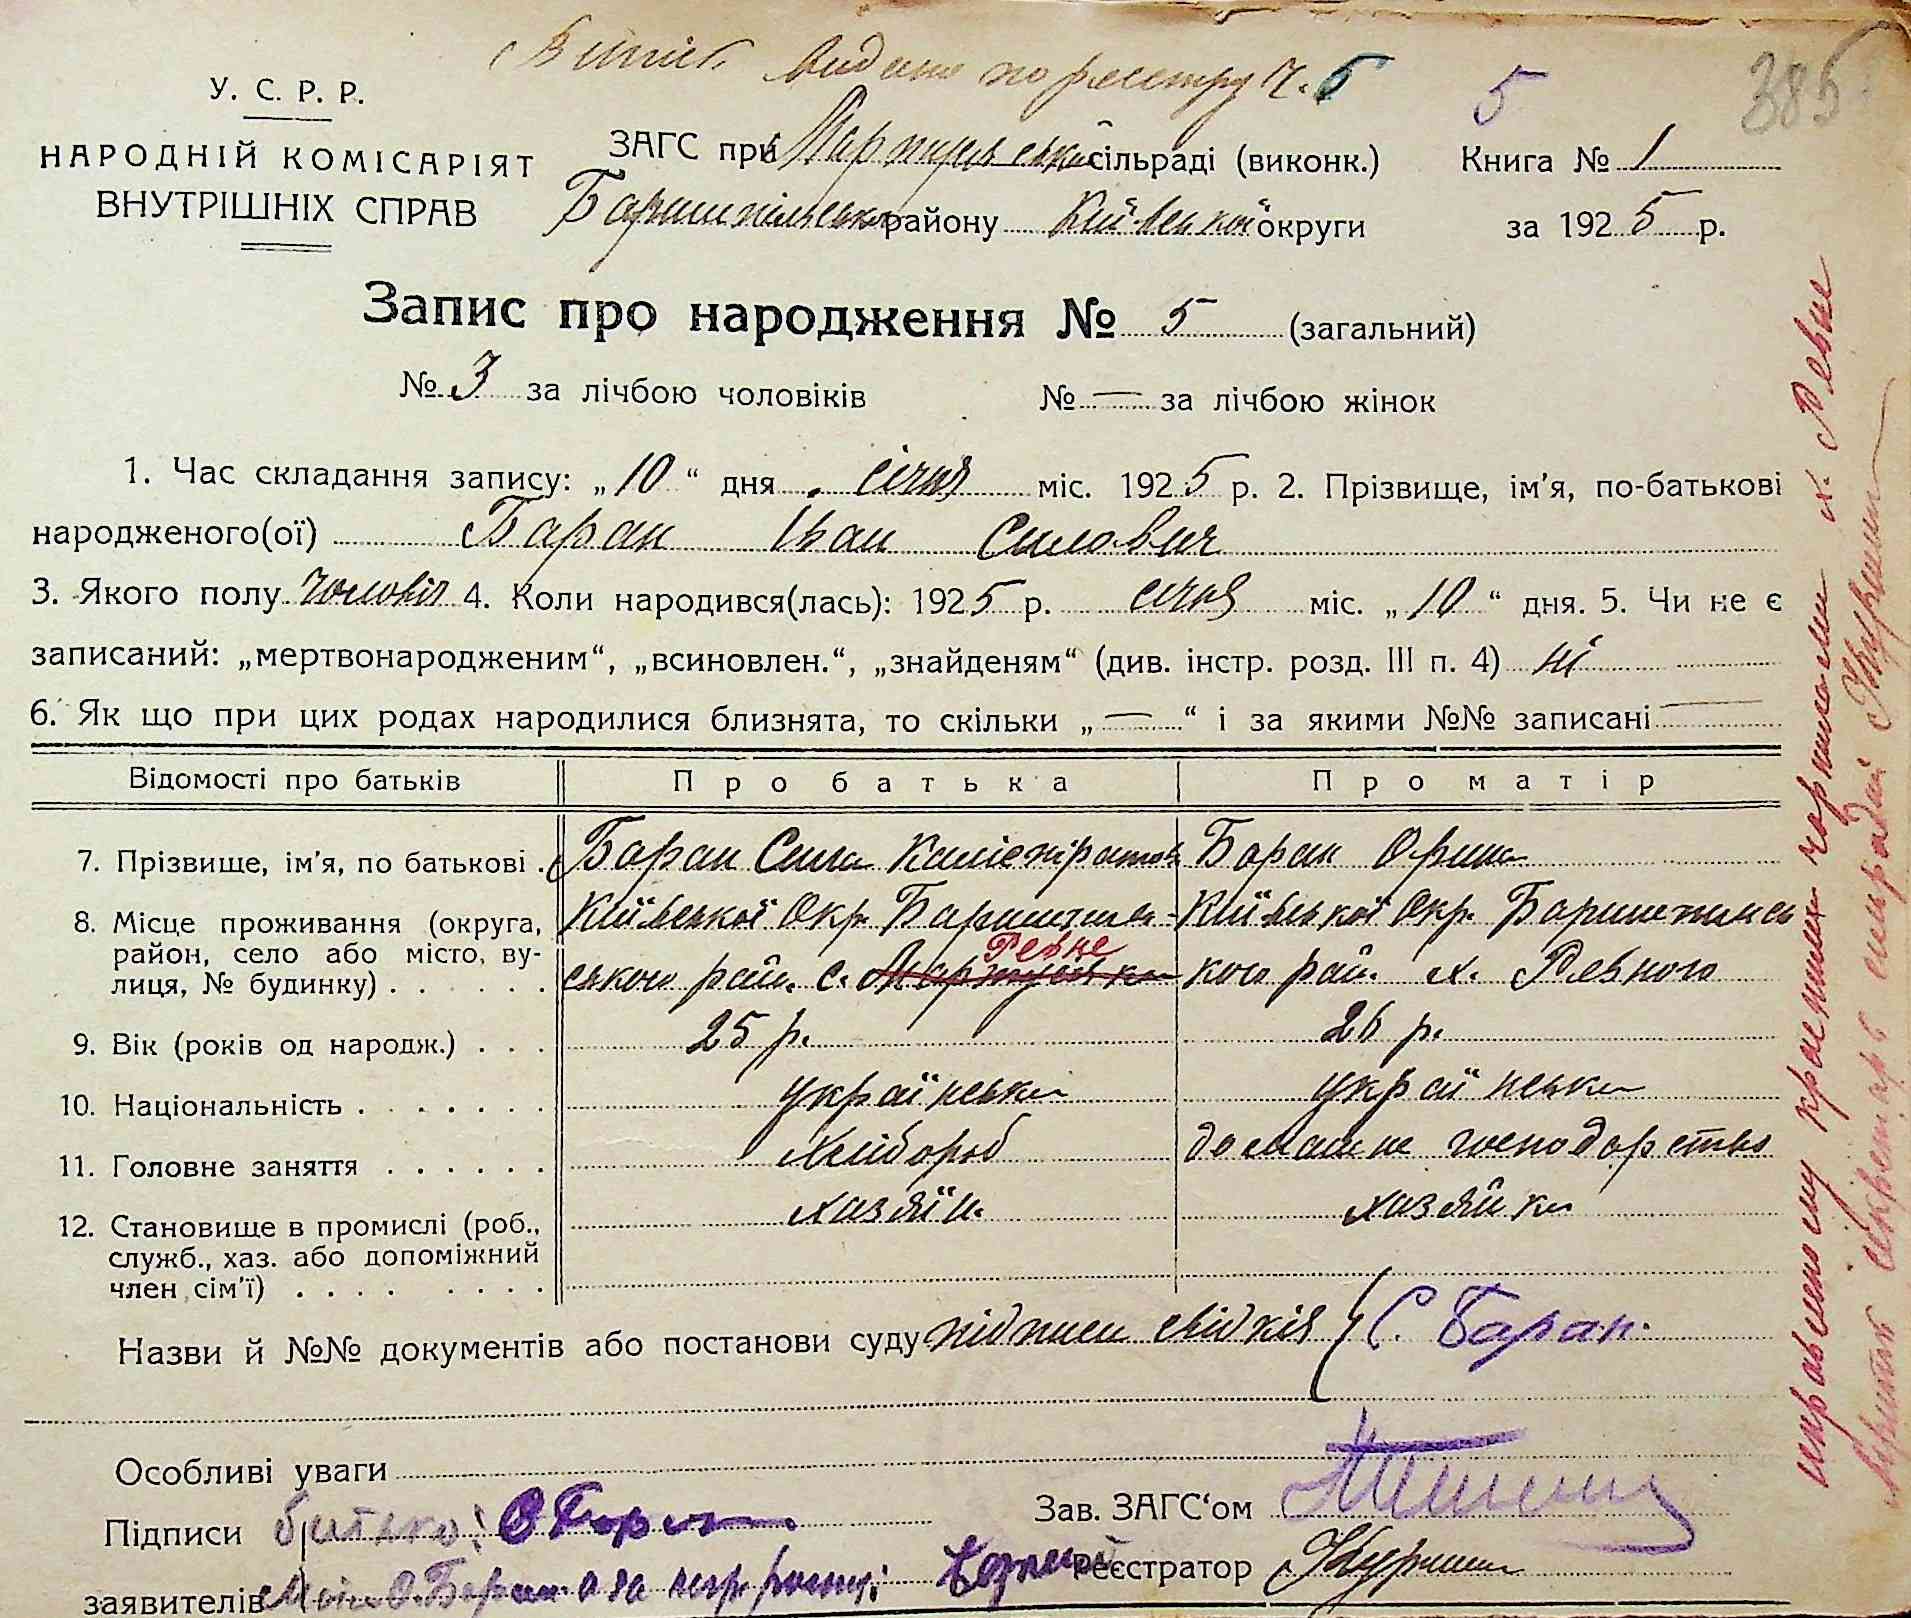 Витяг видано по реєстру Ч. 5
5
385
У. С. Р. Р.
НАРОДНІЙ КОМІСАРІЯТ
ВНУТРІШНІХ СПРАВ
ЗАГС при Мартусівській сільраді (виконк.) Книга № 1
району Київської округи за 1925 р.
Запис про народження № 5 (загальний)
№ 3 за лічбою чоловіків № — за лічбою жінок
1. Час складання запису: „10“ дня січня міс. 1925 р. 2. Прізвище, ім'я, по-батькові
народженого(ої) Баран Іван Силович
3. Якого полу чоловіч 4. Коли народився(лась): 1925 р. січня міс. „10“ дня. 5. Чи не є
записаний: „мертвонародженим“, „всиновлен.“, „знайденям“ (див. інстр. розд. III п. 4) ні
6. Як що при цих родах народилися близнята, то скільки „—“ і за якими №№ записані —
Відомості про батьків Про батька Про матір
7. Прізвище, ім'я, по батькові . Баран Сила Баран Орина
8. Місце проживання (округа, Київської Окр. Київської Окр.
район, село або місто, ву-
лиця, № будинку) . . . . . . ського рай. с. Мартусівка Ревне кого рай. х. Ревного
9. Вік (років од народж.) . . . 25 р. 26 р.
10. Національність . . . . . . . українська українська
11. Головне заняття . . . . . . хлібороб домашнє господарство
12. Становище в промислі (роб., хазяїн. хазяйка
служб., хаз. або допоміжний
член сім'ї) . . . . . . . .
Назви й №№ документів або постанови суду підписи свідків С. Баран.
Особливі уваги
Підписи батько: Зав. ЗАГС'ом
заявителів Реєстратор
исправленому красними чорнилами х. Ревне
секретарь сільради